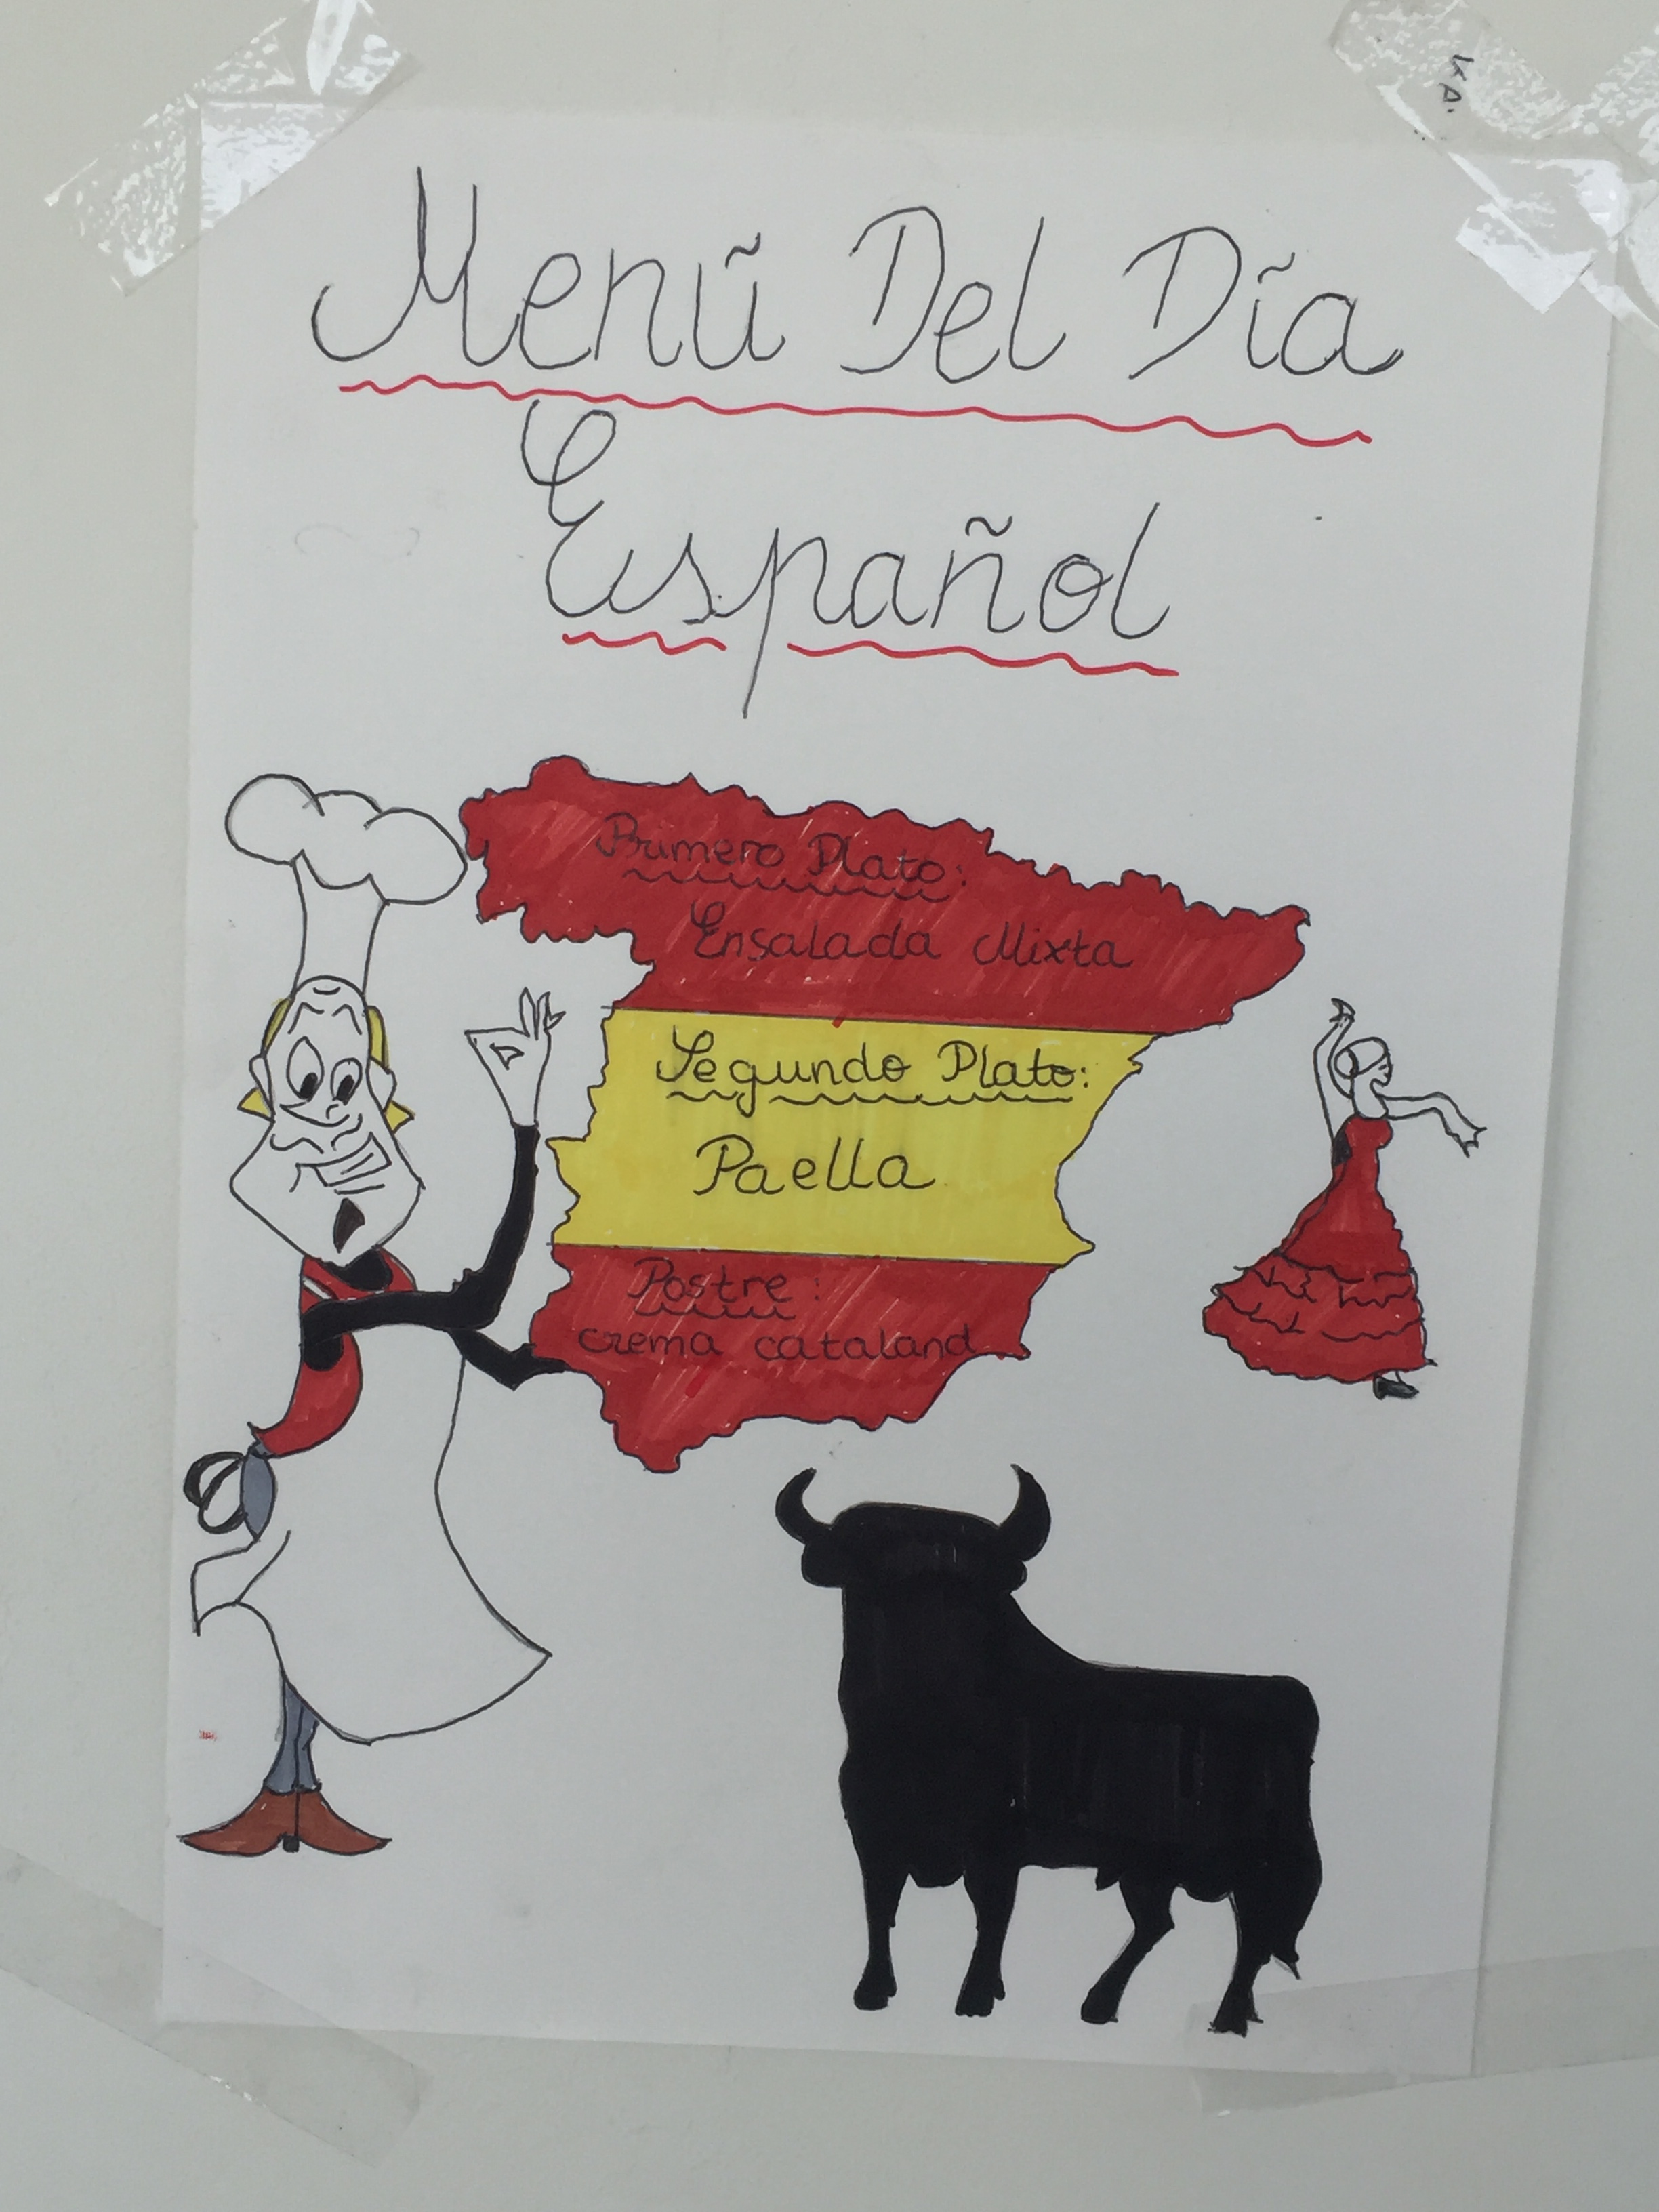 KA.
Menũ Del Día
Español
Primero Plato:
Ensalada Mixta
Segundo Plato:
Paella
Postre:
crema cataland